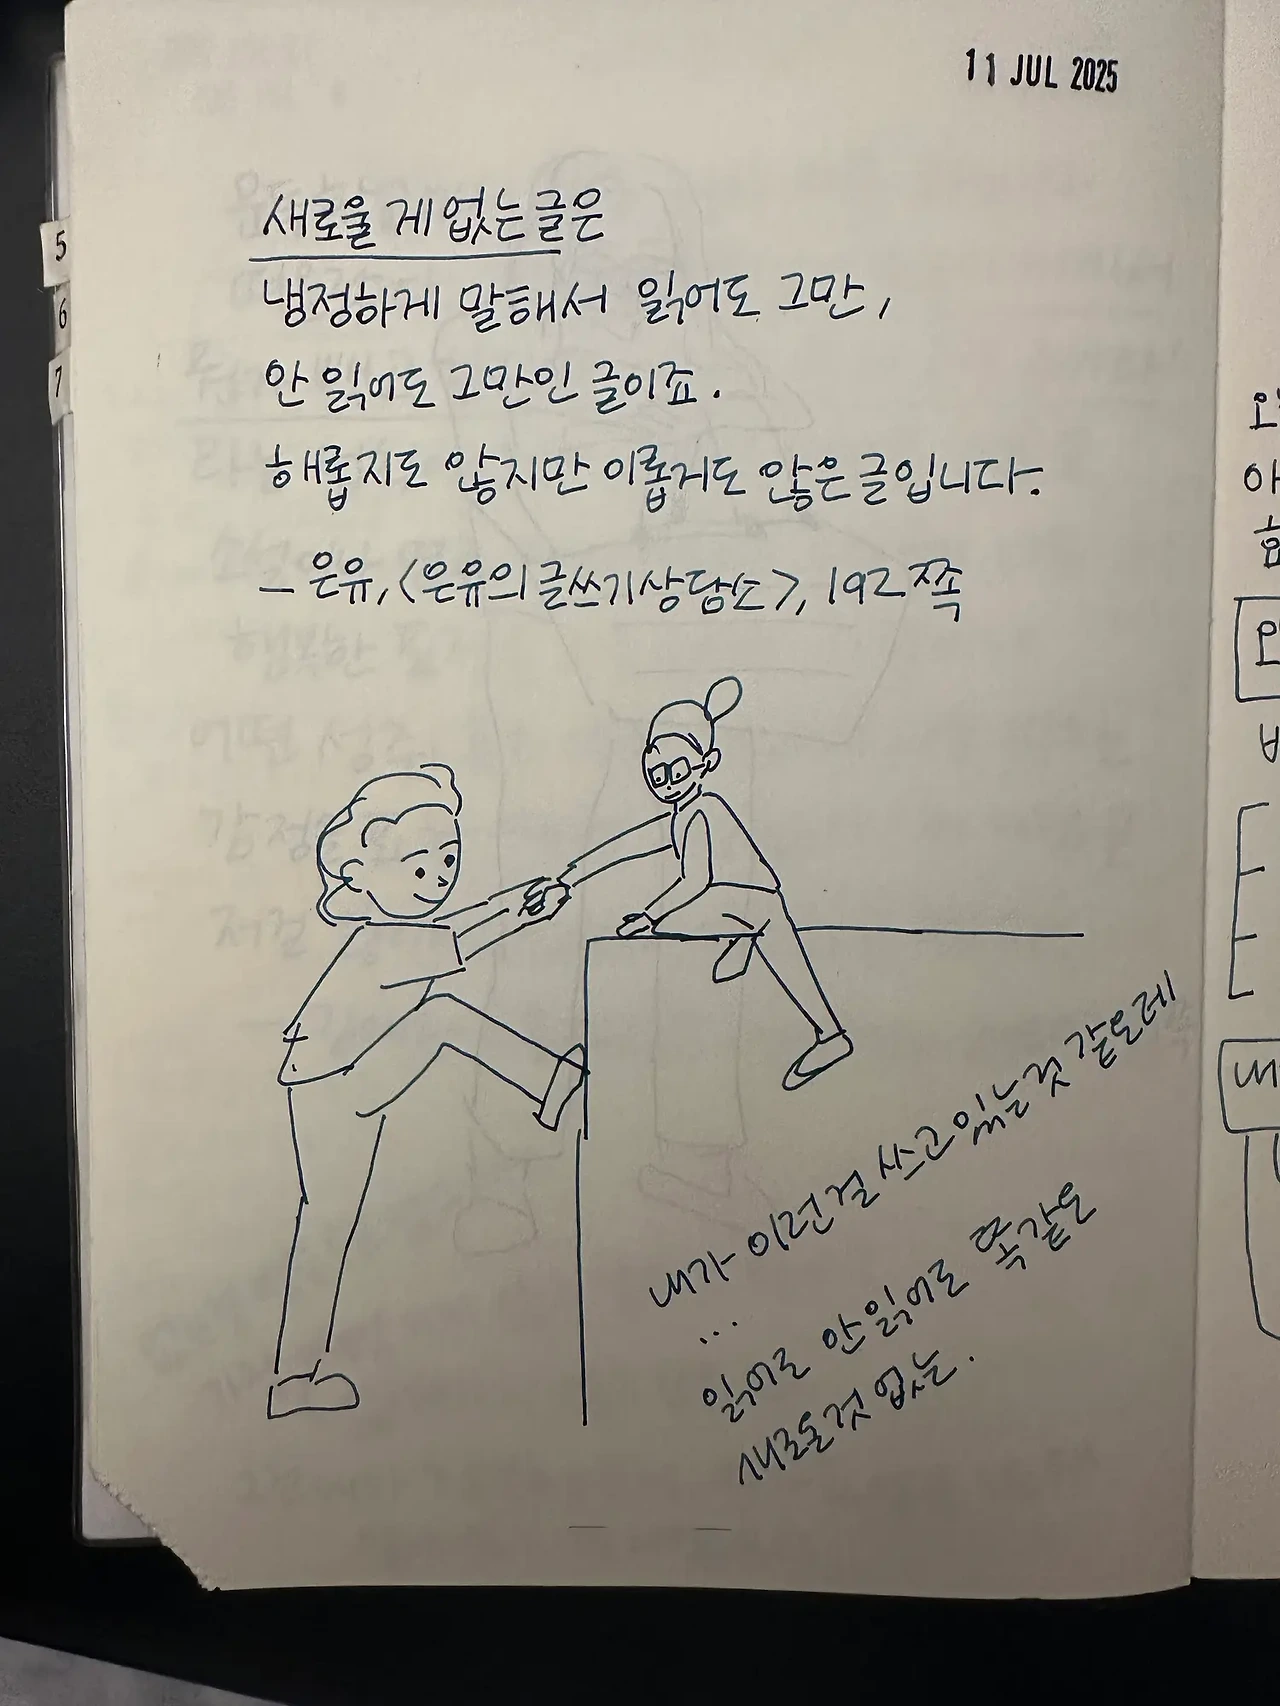 11 JUL 2025
새로울 게 없는 글은
냉정하게 말해서 읽어도 그만,
안 읽어도 그만인 글이죠.
해롭지도 않지만 이롭지도 않은 글입니다.
- 은유, <은유의 글쓰기 상담소>, 192쪽
5
6
7
내가 이런걸 쓰고있는것 같은데
...
읽어도 안읽어도 똑같은
새로울것 없는.